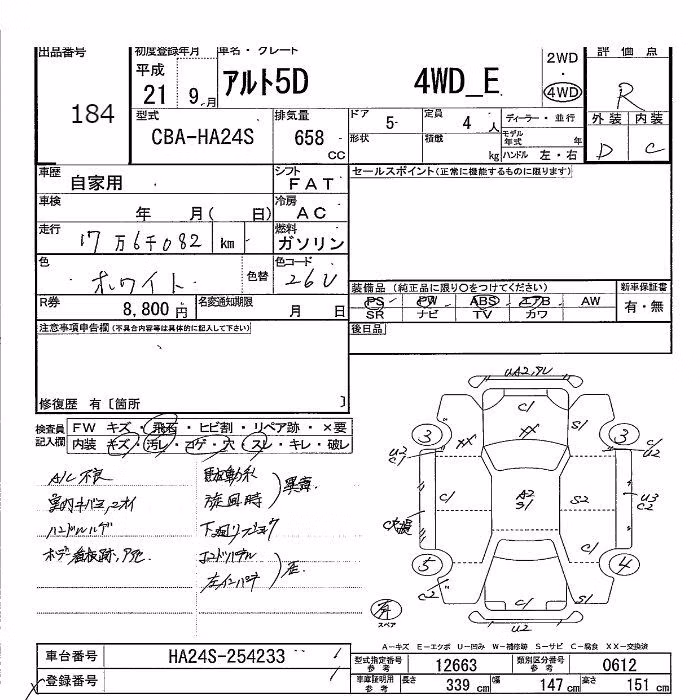 出品番号 初度登録年月 車名・グレード 2WD 評価点
184 平成 21 9 月 アルト5D 4WD_E ・ 4WD R
型式 排気量 ドア 5 定員 4 人 ディーラー・並行 外装 内装
CBA-HA24S 658 CC 形状 積載 kg モデル年式 年 D C
ハンドル 左・右
車歴 自家用 シフト FAT セールスポイント(正常に機能するものに限ります)
車検 年 月( 日) 冷房 AC
走行 17万6千082 km 燃料 ガソリン
色 ホワイト 色替 色コード 26U
装備品 (純正品に限り○をつけてください) 新車保証書
R券 8,800円 名変通知期限 月 日 PS PW ABS エアB AW 有・無
SR ナビ TV カワ
注意事項申告欄(不具合内容等は具体的に記入して下さい) 後日品
修復歴 有〔箇所 〕
検査員記入欄 FW キズ・飛石・ヒビ割・リペア跡・×要
内装 キズ・汚レ・コゲ・穴・スレ・キレ・破レ
A/C不良
旋回時
異音
ハンドルハゲ
UA2,
C1
XX
S1
3
3
C1
U2
U3
C2
C1
A2
S1
S2
C1
5
4
C2
C1
S1
U2
スペア
A-キズ E-エクボ U-凹み W-補修跡 S-サビ C-腐食 XX-交換済
車台番号 HA24S-254233 型式指定番号 参考 12663 類別区分番号 参考 0612
登録番号 車庫証明用 参考 長さ 339 cm 幅 147 cm 高さ 151 cm